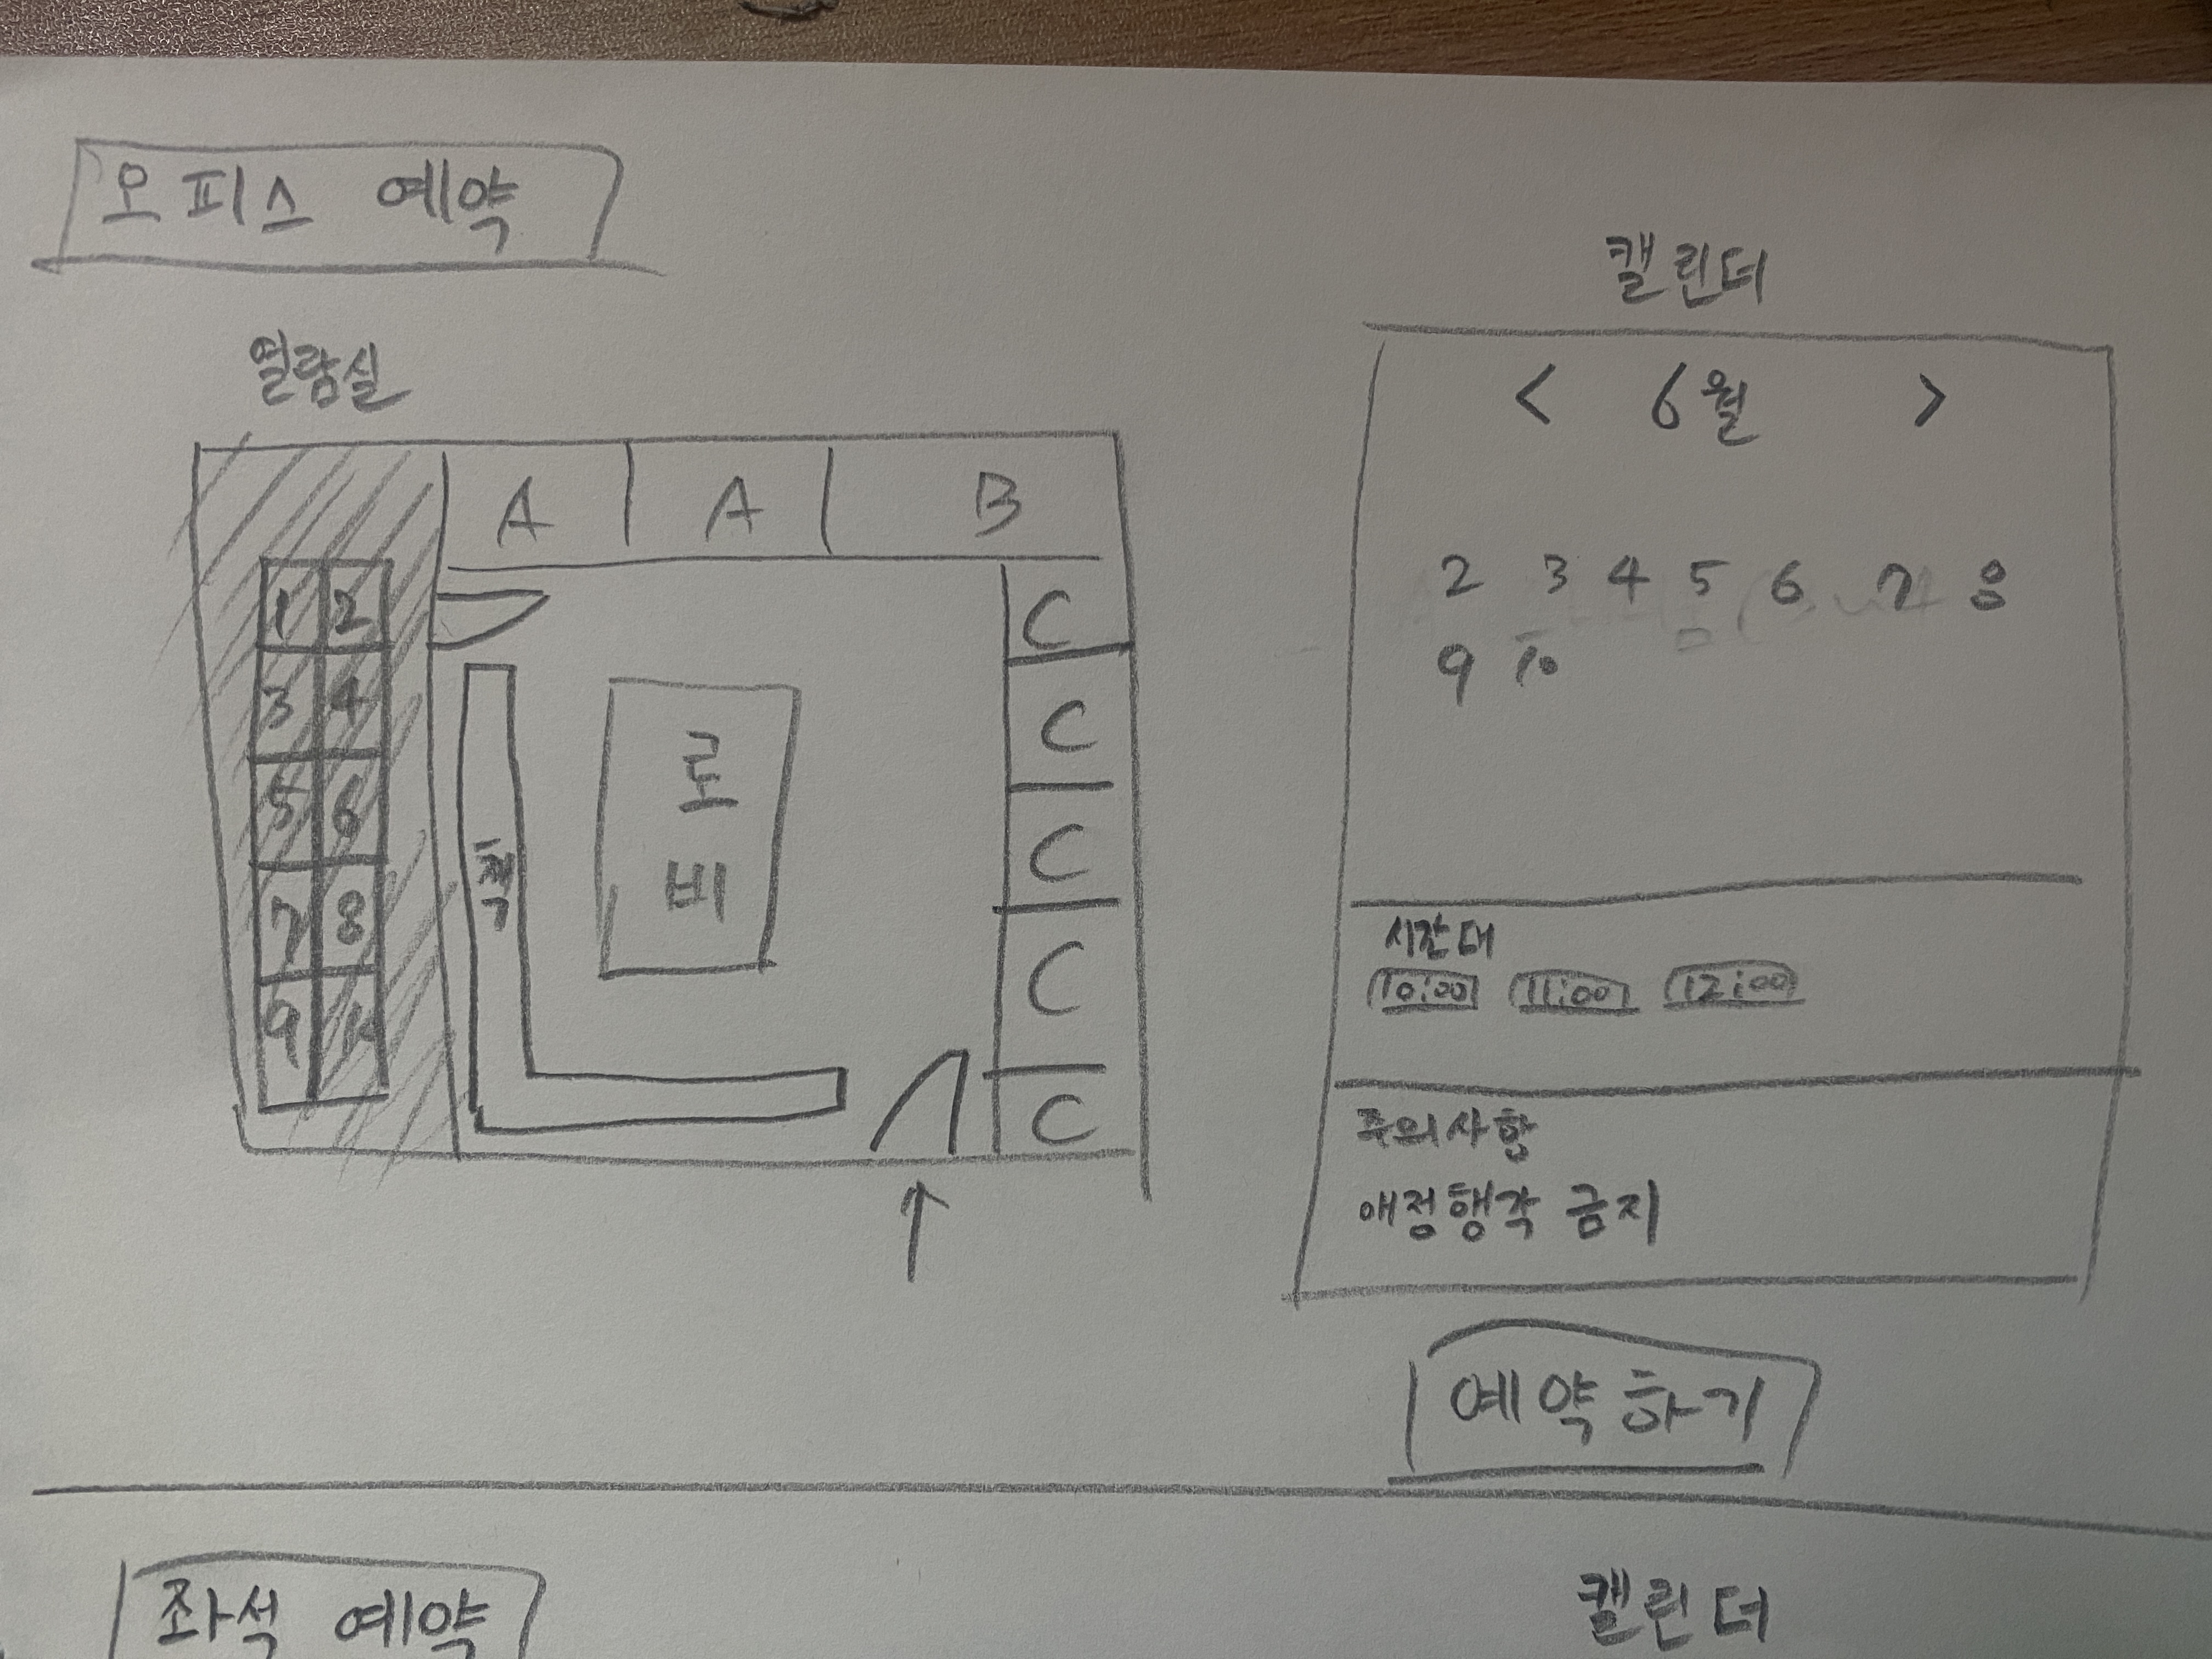 오피스 예약
열람실
A A B
1 2
3 4
5 6
7 8
9 10
책
로
비
C
C
C
C
C
캘린더
< 6월 >
2 3 4 5 6 7 8
9 10
시간대
10:00 11:00 12:00
주의사항
애정행각 금지
예약하기
좌석 예약
캘린더